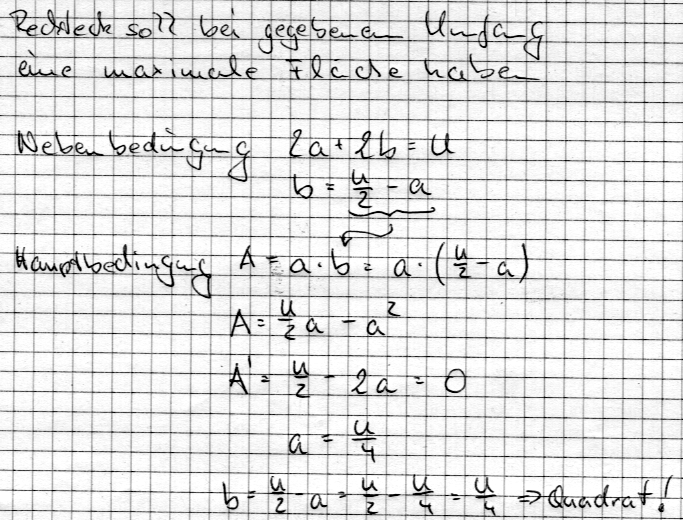 Rechteck soll bei gegebenem Umfang
eine maximale Fläche haben
Nebenbedingung 2a + 2b = U
b = u/2 - a
Hauptbedingung A = a · b = a · (u/2 - a)
A = u/2 a - a²
A' = u/2 - 2a = 0
a = u/4
b = u/2 - a = u/2 - u/4 = u/4 ⇒ Quadrat!